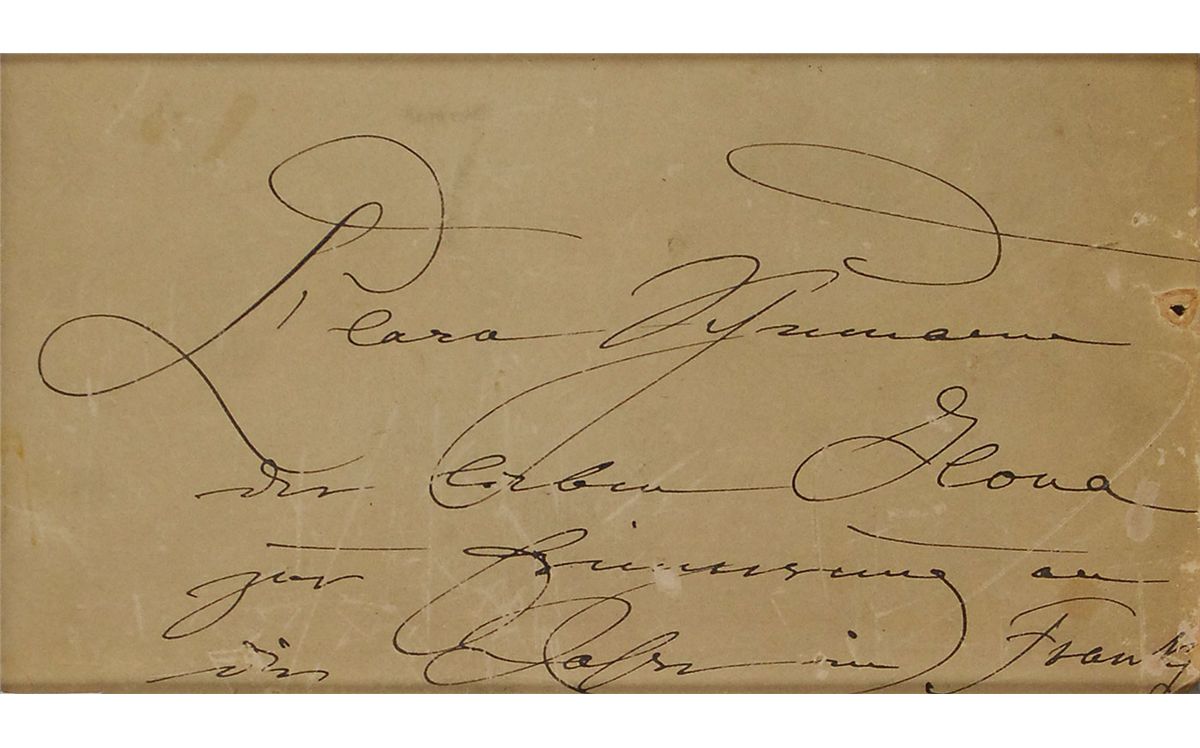 Clara Schumann
der lieben Ilona
zur Erinnerung an
die Jahre in Frankf